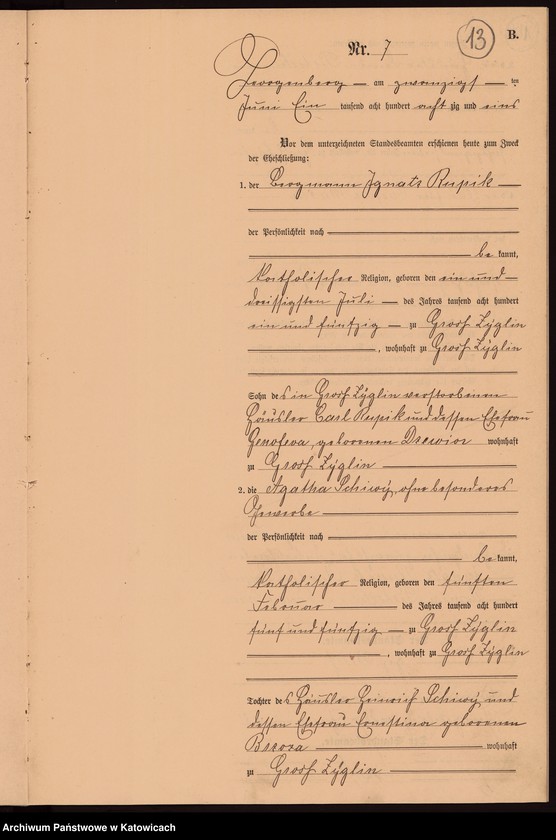 13
B.
Nr. 7
Georgenberg am zwanzigsten
Juni Ein tausend acht hundert acht zig und eins
Vor dem unterzeichneten Standesbeamten erschienen heute zum Zweck
der Eheschließung:
1. der Bergmann Ignatz Rupik
der Persönlichkeit nach
be kannt,
katholischer Religion, geboren den ein und
dreissigsten Juli des Jahres tausend acht hundert
ein und fünfzig zu Groß Zyglin
, wohnhaft zu Groß Zyglin
Sohn des in Groß Zyglin verstorbenen
Häusler Carl Rupik und dessen Ehefrau
Genofeva, geborenen Drewior wohnhaft
zu Groß Zyglin
2. die Agatha Schiwy, ohne besonderes
Gewerbe
der Persönlichkeit nach
be kannt,
katholischer Religion, geboren den fünften
Februar des Jahres tausend acht hundert
fünf und fünfzig zu Groß Zyglin
, wohnhaft zu Groß Zyglin
Tochter des Häusler Heinrich Schiwy und
dessen Ehefrau Ernestina geborenen
wohnhaft
zu Groß Zyglin
Archiwum Państwowe w Katowicach